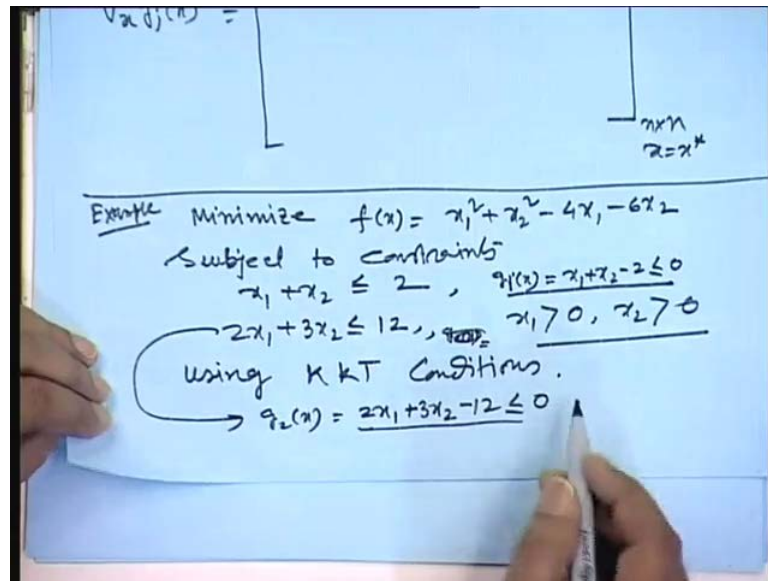 ∇x gj(x) =
n×n
x=x*
Example Minimize f(x) = x₁² + x₂² - 4x₁ - 6x₂
Subject to constraints
x₁ + x₂ ≤ 2 , g₁(x) = x₁+x₂-2 ≤ 0
2x₁ + 3x₂ ≤ 12 , x₁ > 0, x₂ > 0
using KKT Conditions.
g₂(x) = 2x₁+3x₂-12 ≤ 0